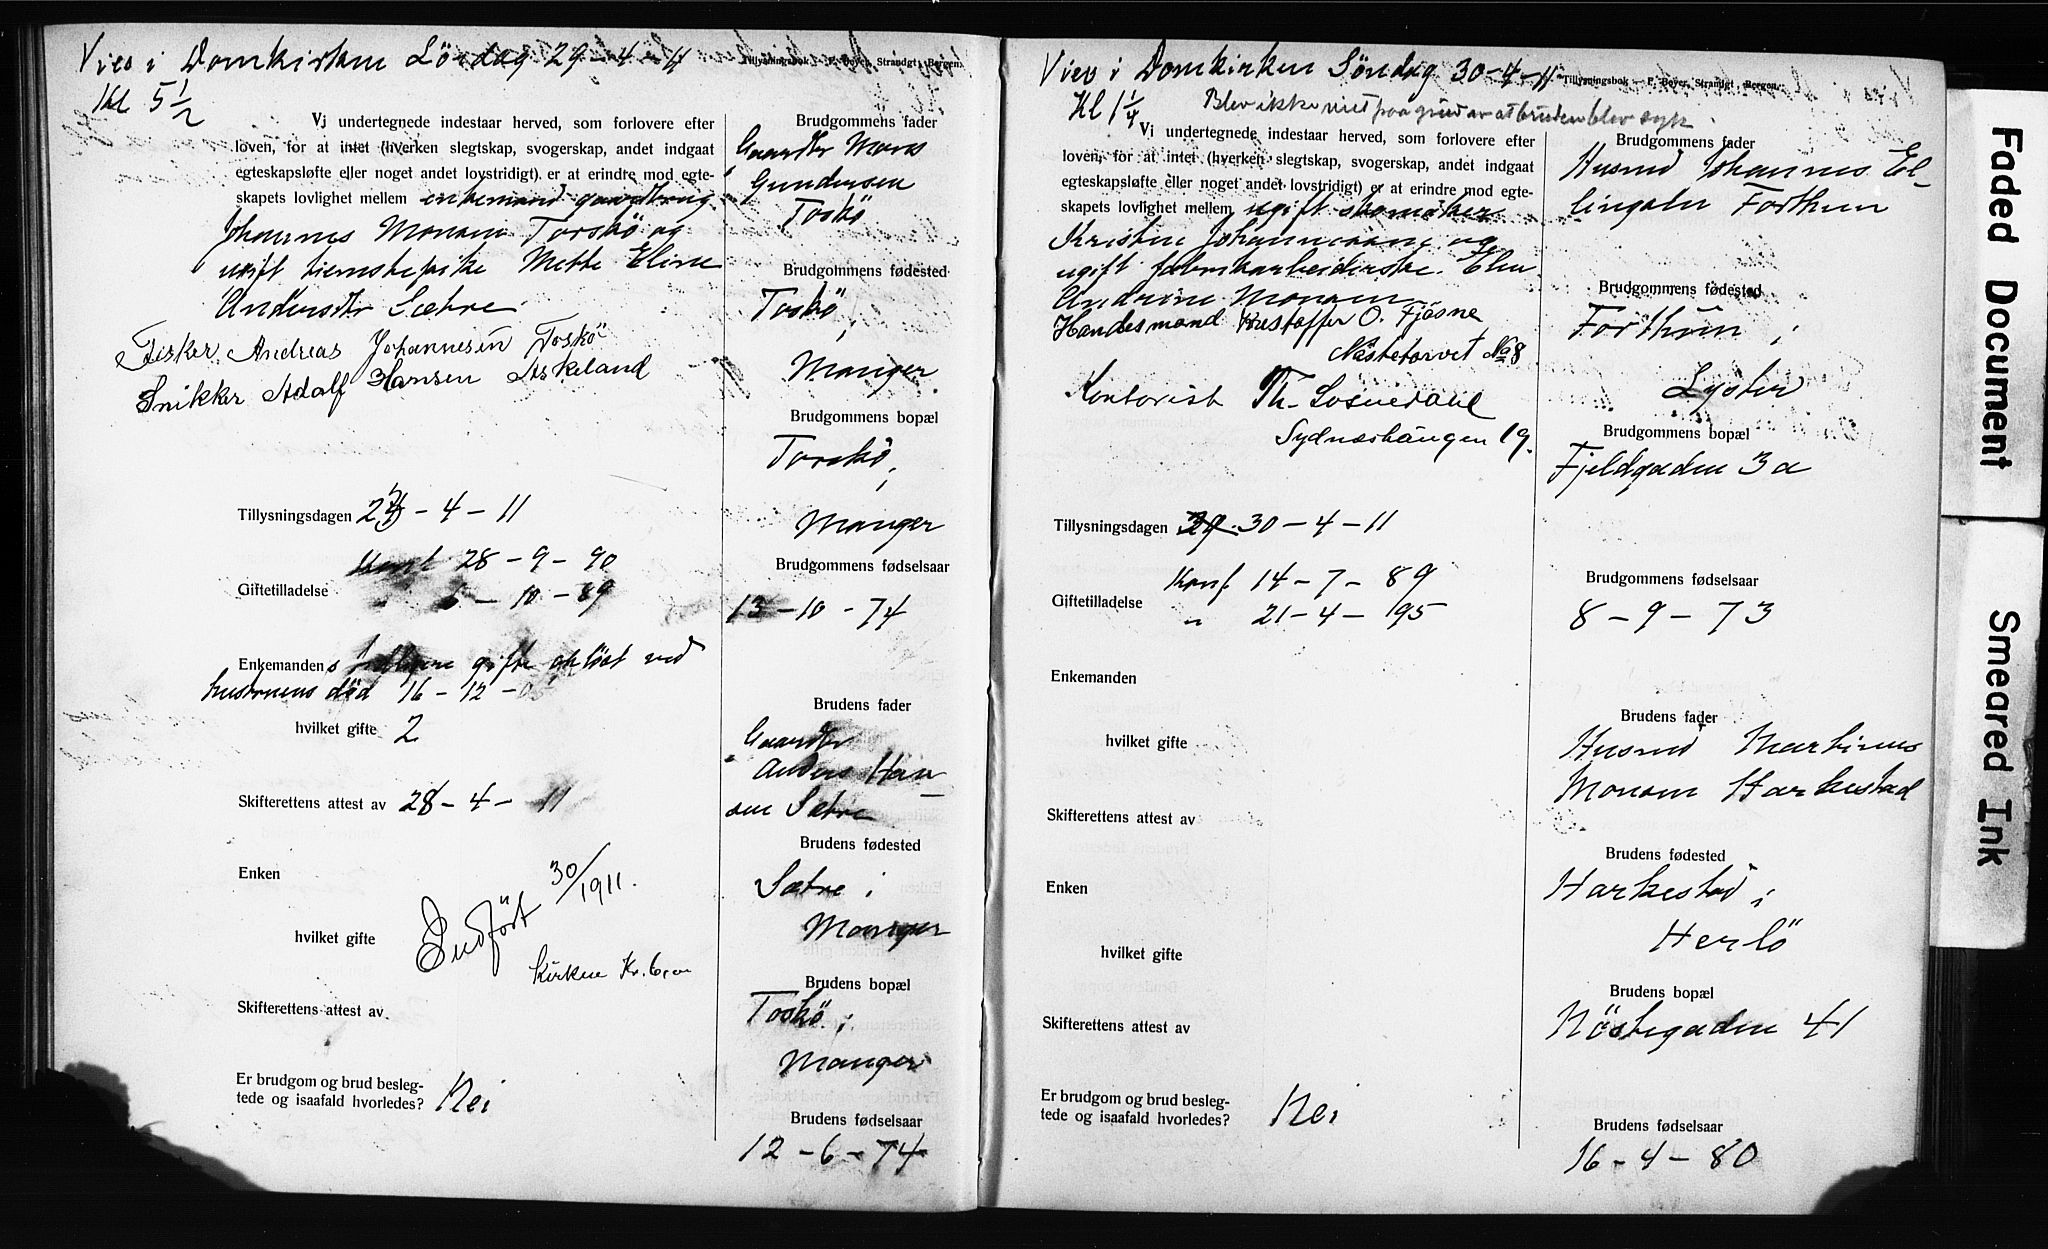 Vies i Domkirken Lördag 29-4-11
Kl 5 1/2
Tillysningsbok - F. Beyer, Strandgt, Bergen.
Vi undertegnede indestaar herved, som forlovere efter
loven, for at intet (hverken slegtskap, svogerskap, andet indgaat
egteskapsløfte eller noget andet lovstridigt) er at erindre mod egte-
skapets lovlighet mellem enkemand gaardbrug.
Johannes Monsen Torskö og
ugift tjenestepike Mette Eline
Andersdtr Sætre.
Fisker Andreas Johannesen Toskö
Snikker Adolf Hansen Askeland
Tillysningsdagen 23-4-11
Konf 28-9-90
Giftetilladelse " 6-10-89
Enkemandens tidligere gifte opløst ved
hustruens død 16-12-0
hvilket gifte 2
Skifterettens attest av 28-4-11
Enken
hvilket gifte
Indført 30/1911.
Kirken Kr. 6,00
Skifterettens attest av
Er brudgom og brud besleg-
tede og isaafald hvorledes? Nei
Brudgommens fader
Gaardbr Mons
Gundersen
Toskö
Brudgommens fødested
Toskö,
Manger.
Brudgommens bopæl
Torskö,
Manger
Brudgommens fødselsaar
13-10-74
Brudens fader
Gaardbr
Anders Han-
sen Sætre
Brudens fødested
Sætre i
Manger
Brudens bopæl
Toskö i
Manger
Brudens fødselsaar
12-6-74
Vies i Domkirken Söndag 30-4-11
Tillysningsbok - F. Beyer, Strandgt, Bergen.
Kl 1 1/4 Blev ikke viet paa grund av at bruden blev syk.
Vi undertegnede indestaar herved, som forlovere efter
loven, for at intet (hverken slegtskap, svogerskap, andet indgaat
egteskapsløfte eller noget andet lovstridigt) er at erindre mod egte-
skapets lovlighet mellem ugift skomaker
Kristen Johannessen og
ugift fabrikarbeiderske Elen
Andrine Monsen
Handesmand Kristoffer O. Fjösne
Nöstetorvet No 8
Kontorist Th. Sognedahl
Sydneshaugen 19.
Tillysningsdagen 30-4-11
Konf. 14-7-89
Giftetilladelse " 21-4-195
Enkemanden
hvilket gifte
Skifterettens attest av
Enken
hvilket gifte
Skifterettens attest av
Er brudgom og brud besleg-
tede og isaafald hvorledes? Nei
Brudgommens fader
Husmd Johannes El-
lingsen Forthun
Brudgommens fødested
Forthun i
Lyster
Brudgommens bopæl
Fjeldgaden 3a
Brudgommens fødselsaar
8-9-73
Brudens fader
Husmd Martinus
Monsen Harkestad
Brudens fødested
Harkestad i
Herlö
Brudens bopæl
Nöstegaden 41
Brudens fødselsaar
16-4-80
Faded Document
Smeared Ink